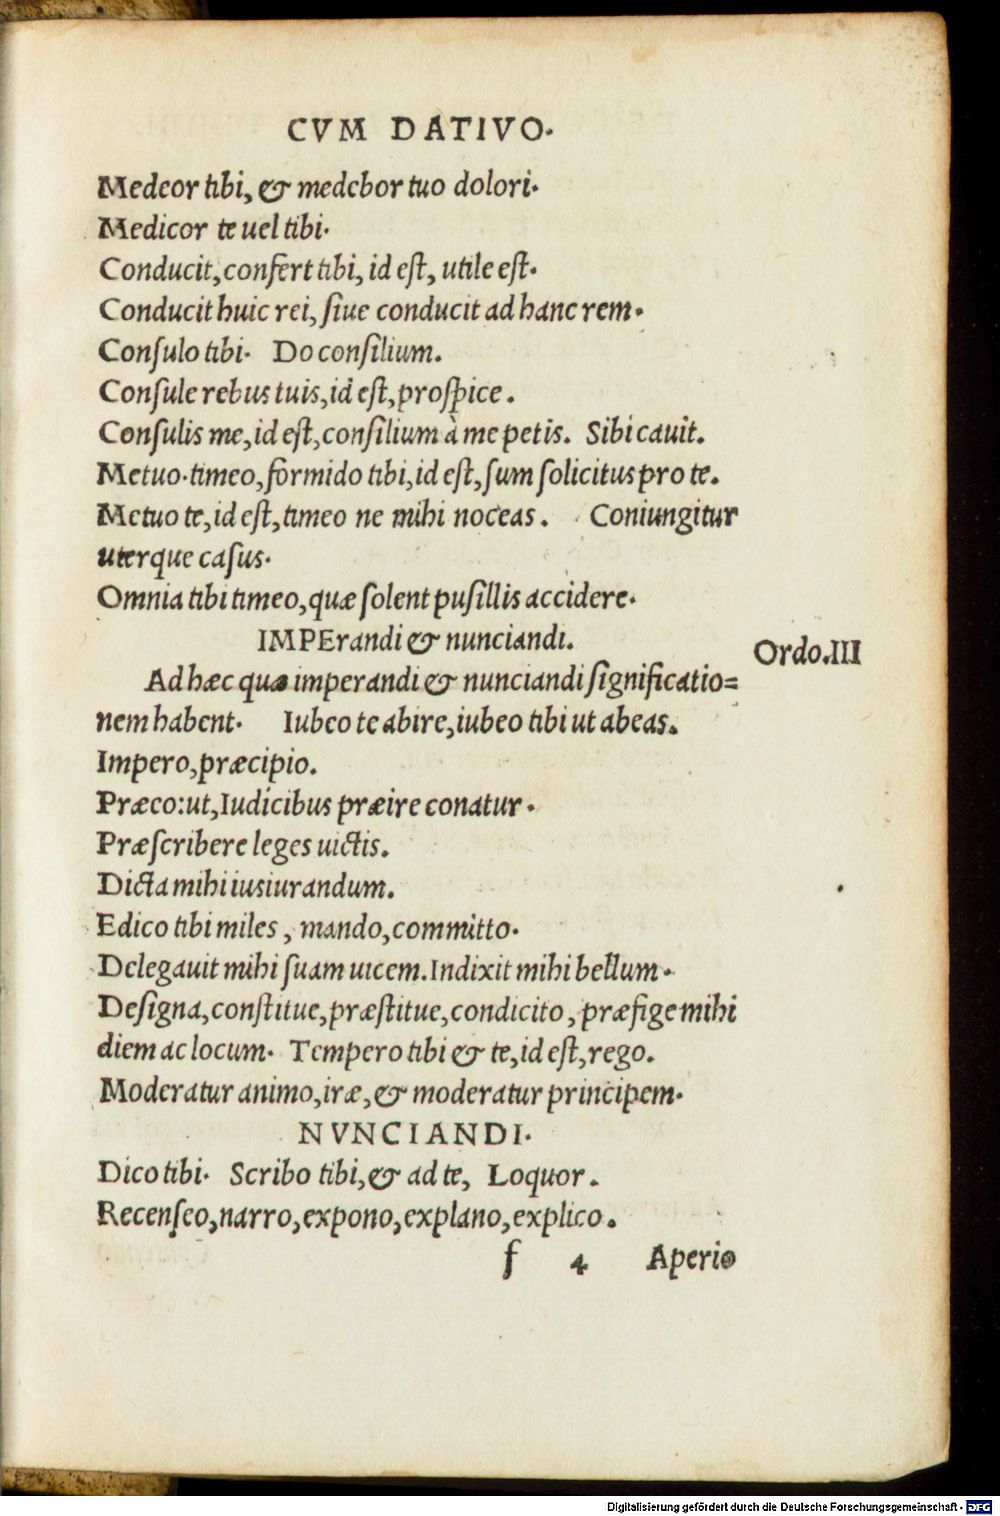 CVM DATIVO.
Medeor tibi, & medebor tuo dolori.
Medicor te uel tibi.
Conducit, confert tibi, id eſt, utile eſt.
Conducit huic rei, ſiue conducit ad hanc rem.
Conſulo tibi. Do conſilium.
Conſule rebus tuis, id eſt, proſpice.
Conſulis me, id eſt, conſilium à me petis. Sibi cauit.
Metuo. timeo, formido tibi, id eſt, ſum ſolicitus pro te.
Metuo te, id eſt, timeo ne mihi noceas. Coniungitur
uterque caſus.
Omnia tibi timeo, quæ ſolent puſillis accidere.
IMPErandi & nunciandi.
Ordo.III
Ad hæc quæ imperandi & nunciandi ſignificatio=
nem habent. Iubeo te abire, iubeo tibi ut abeas.
Impero, præcipio.
Præeo: ut, Iudicibus præire conatur.
Præſcribere leges uictis.
Dicta mihi iusiurandum.
Edico tibi miles, mando, committo.
Delegauit mihi ſuam uicem. Indixit mihi bellum.
Deſigna, conſtitue, præſtitue, condicito, præfige mihi
diem ac locum. Tempero tibi & te, id eſt, rego.
Moderatur animo, iræ, & moderatur principem.
NVNCIANDI.
Dico tibi. Scribo tibi, & ad te, Loquor.
Recenſeo, narro, expono, explano, explico.
f 4 Aperio
Digitalisierung gefördert durch die Deutsche Forschungsgemeinschaft - DFG